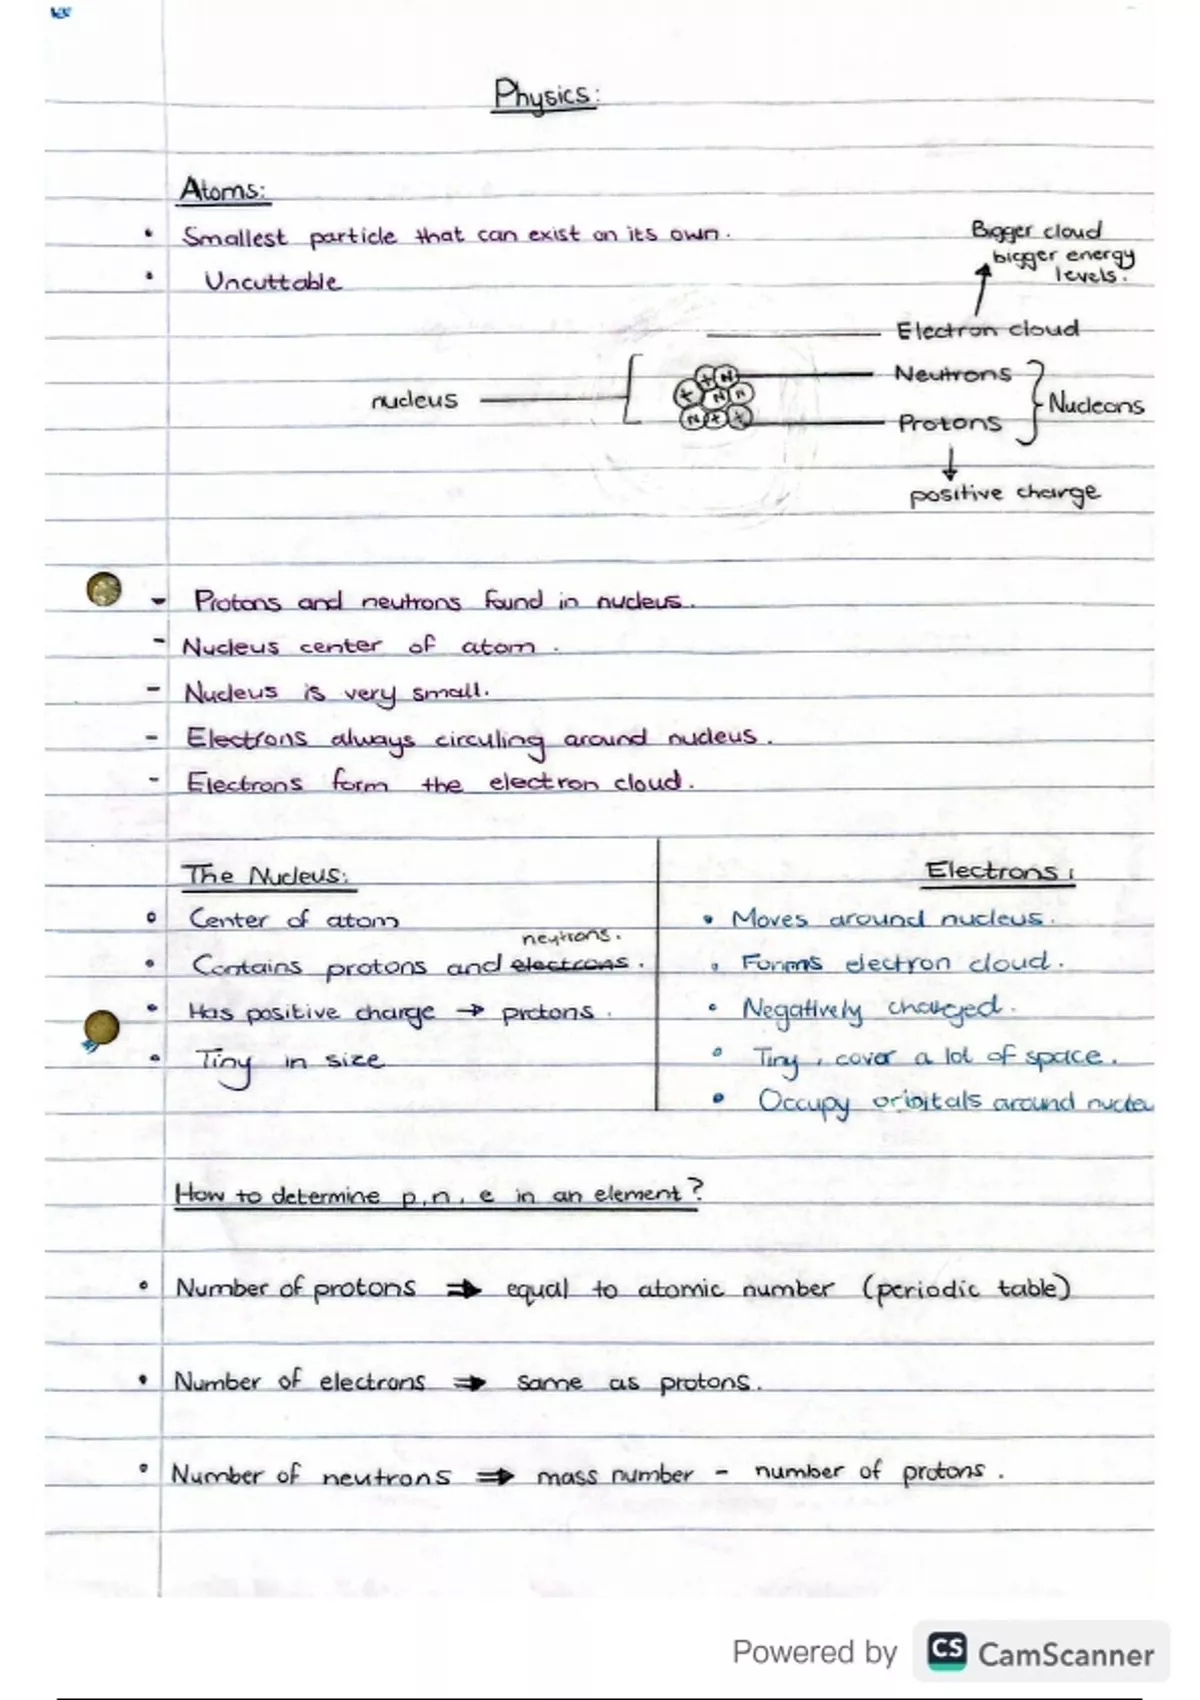 Physics:
Atoms:
• Smallest particle that can exist on its own.
• Uncuttable
Bigger cloud
bigger energy
levels.
Electron cloud
Neutrons
nucleus
Nucleons
Protons
positive charge
- Protons and neutrons found in nucleus.
- Nucleus center of atom.
- Nucleus is very small.
- Electrons always circuling around nucleus.
- Electrons form the electron cloud.
The Nucleus:
• Center of atom
neutrons.
• Contains protons and electrons.
• Has positive charge → protons.
• Tiny in size
Electrons:
• Moves around nucleus.
• Forms electron cloud.
• Negatively charged.
• Tiny, cover a lot of space.
• Occupy orbitals around nucleu
How to determine p, n, e in an element?
• Number of protons ⇒ equal to atomic number (periodic table)
• Number of electrons ⇒ same as protons.
• Number of neutrons ⇒ mass number - number of protons.
Powered by CS CamScanner